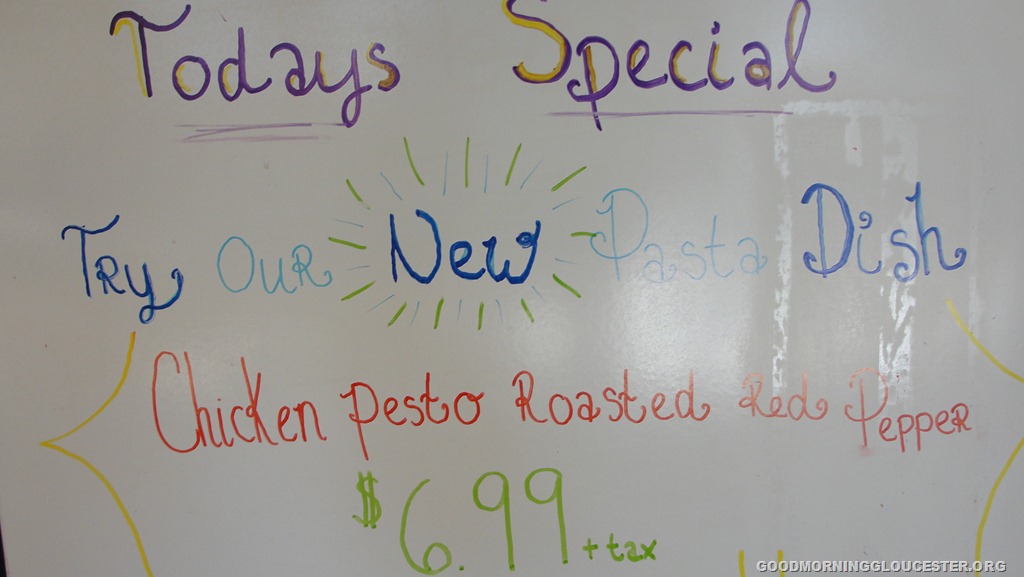 Todays Special
Try Our New Pasta Dish
Chicken Pesto Roasted Red Pepper
$6.99 + tax
GOODMORNINGGLOUCESTER.ORG